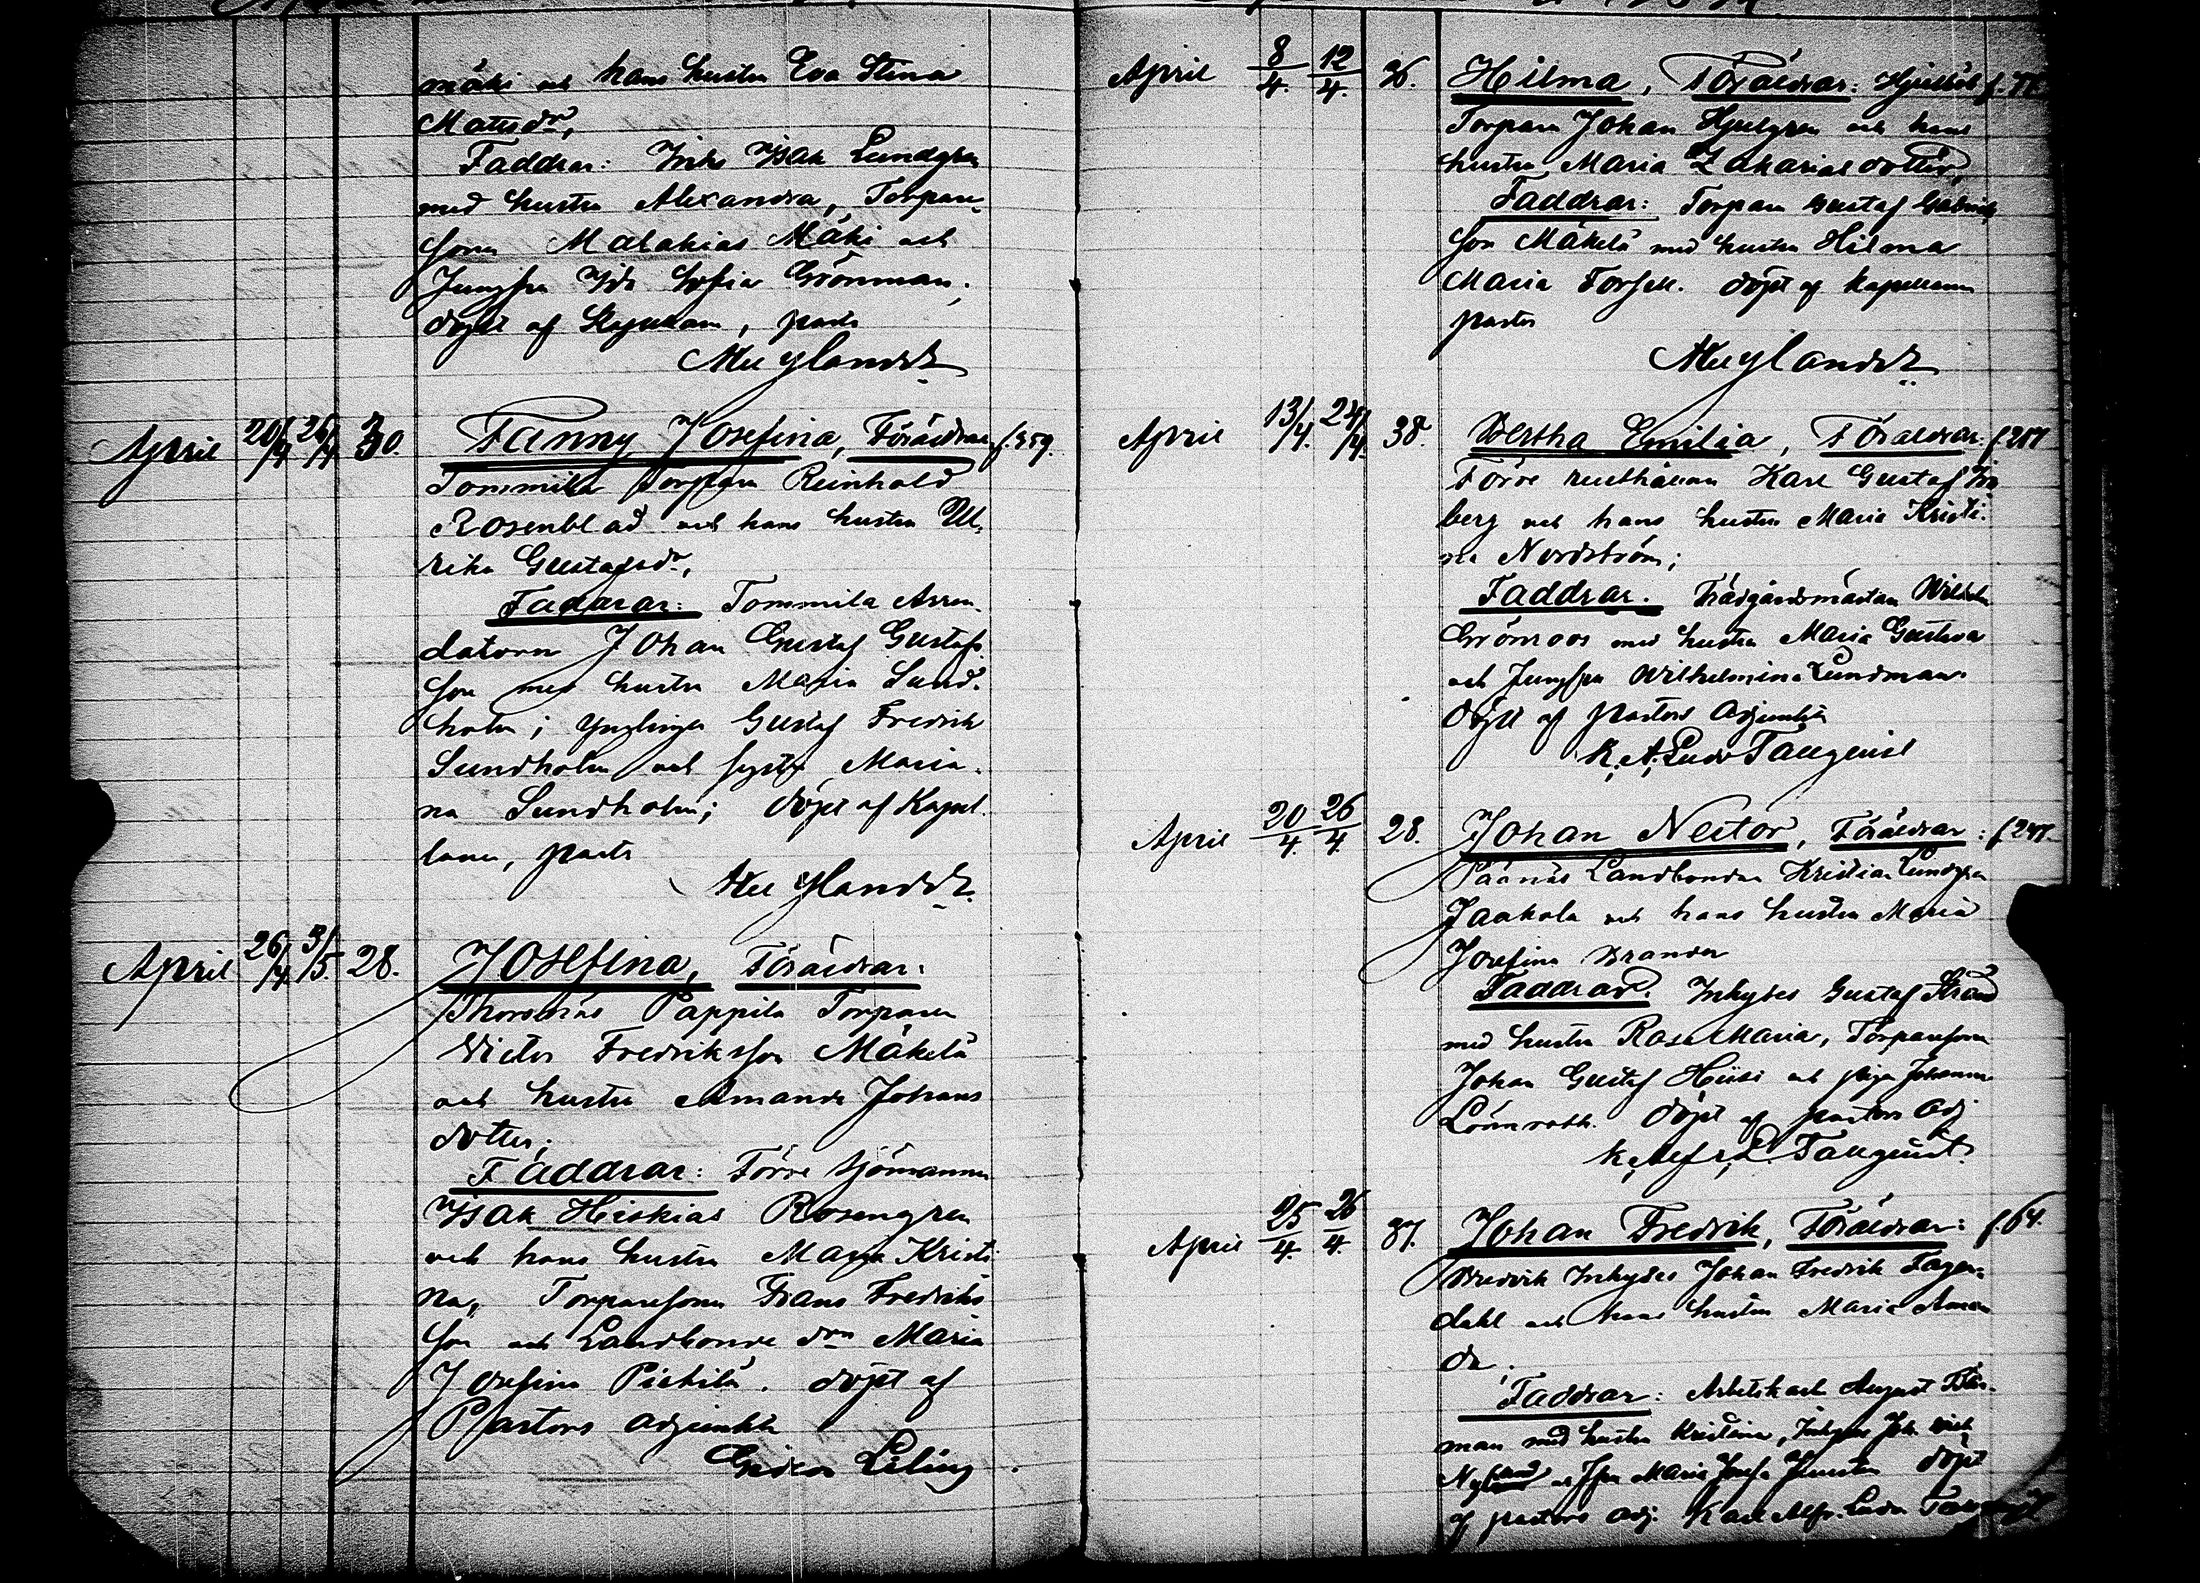 mäki och hans hustru Eva Stina
Matsdr,
Faddrar: Inhs Isak Lundgren
med hustru Alexandra, Torpare
sonen Malakias Mäki och
Jungfru Ida Sofia Grönman,
döpt af Kapellan, past
Nylander
April 20/4 26/4 30. Fanny Josefina, Föräldrar f. 359.
Tommila Torparn Reinhold
Rosenblad och hans hustru Ul-
rika Gustafsdr,
Faddrar: Tommila Arren-
datorn Johan Gustaf Gustafs-
son med hustru Maria Sund-
holm; ynglingen Gustaf Fredrik
Sundholm och syster Maria-
na Sundholm; döpt af Kapel-
lanen, pastr
Nylander
April 26/4 3/5 28. Josefina, Föräldrar:
Pappila Torparen
Victor Fredriksson Mäkelä
och hustru Amanda Johans
dotter;
Faddrar: Förre sjömannen
Isak Heskias Rosengren
och hans hustru Maria Kristi-
na, Torparesonen Frans Fredriks
son och Landbonde drn Maria
Josefina Pietilä. döpt af
Pastors adjunkten
Gideon Leling
April 8/4. 12/4. 36. Hilma, Föräldrar: f. 77
Torparn Johan Hjulgren och hans
hustru Maria Zakarias dotter,
Faddrar: Torparn Gustaf Gabriels
son Mäkelä med hustru Hilma
Maria Forsell. döpt af Kapellanen
pastor
Nylander
April 13/4. 24/4. 38. Bertha Emilia, Föräldrar: f 217
Förre rusthållaren Karl Gustaf
berg och hans hustru Maria Kristi-
na Nordström;
Faddrar. Trädgårdsmästaren Wilhelm
Grönroos med hustru Maria Gustava
och Jungfru Wilhelmina Lundman.
döpt af pastors adjunkten
K. A. Ludv Tallqvist
April 20/4. 26/4. 28. Johan Nestor, Föräldrar: f 247.
Landbonden Kristian Lundgren
Jaakola och hans hustru Maria
Josefina Brander
Faddrar. Inhyses Gustaf Strand
med hustru Rosa Maria, Torparesonen
Johan Gustaf Hiisi och pigan Johanna
Lönnroth. döpt af pastors adj
K. Alfr. L. Tallqvist.
April 25/4. 26/4. 37. Johan Fredrik, Föräldrar: f. 64.
Bredvik Inhyses Johan Fredrik Fager-
dahl och hans hustru Maria Aman
da;
Faddrar: Arbetskarl August
man med hustru Kristina, Inhyses Joh.
och Jfru Maria Josefa döpt
af pastors adj. Karl Alfr. Ludv. Tallqvist